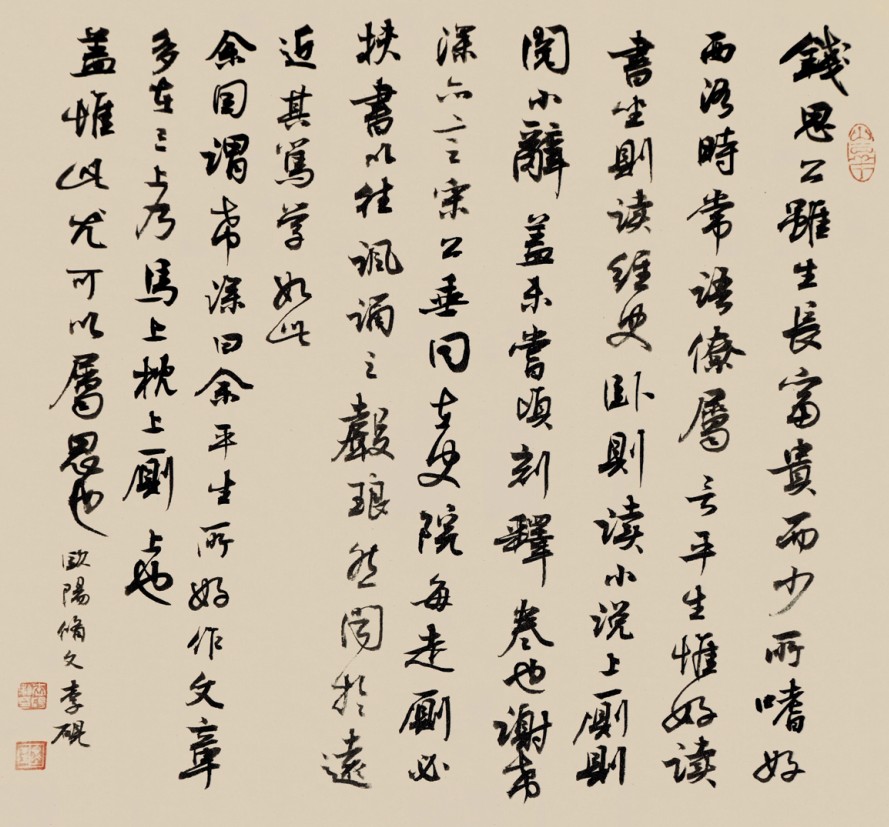 錢思公雖生長富貴而少所嗜好
西洛時常語僚屬言平生惟好读
書坐則读經史卧則读小说上厠則
閱小辭蓋未嘗頃刻釋卷也謝希
深亦言宋公垂同在史院每走厠必
挟書以往諷誦之聲琅然闻於遠
近其篤学如此
余因謂希深曰余平生所好作文章
多在三上乃馬上枕上厠上也
蓋惟此尤可以屬思也 歐陽脩文李硯